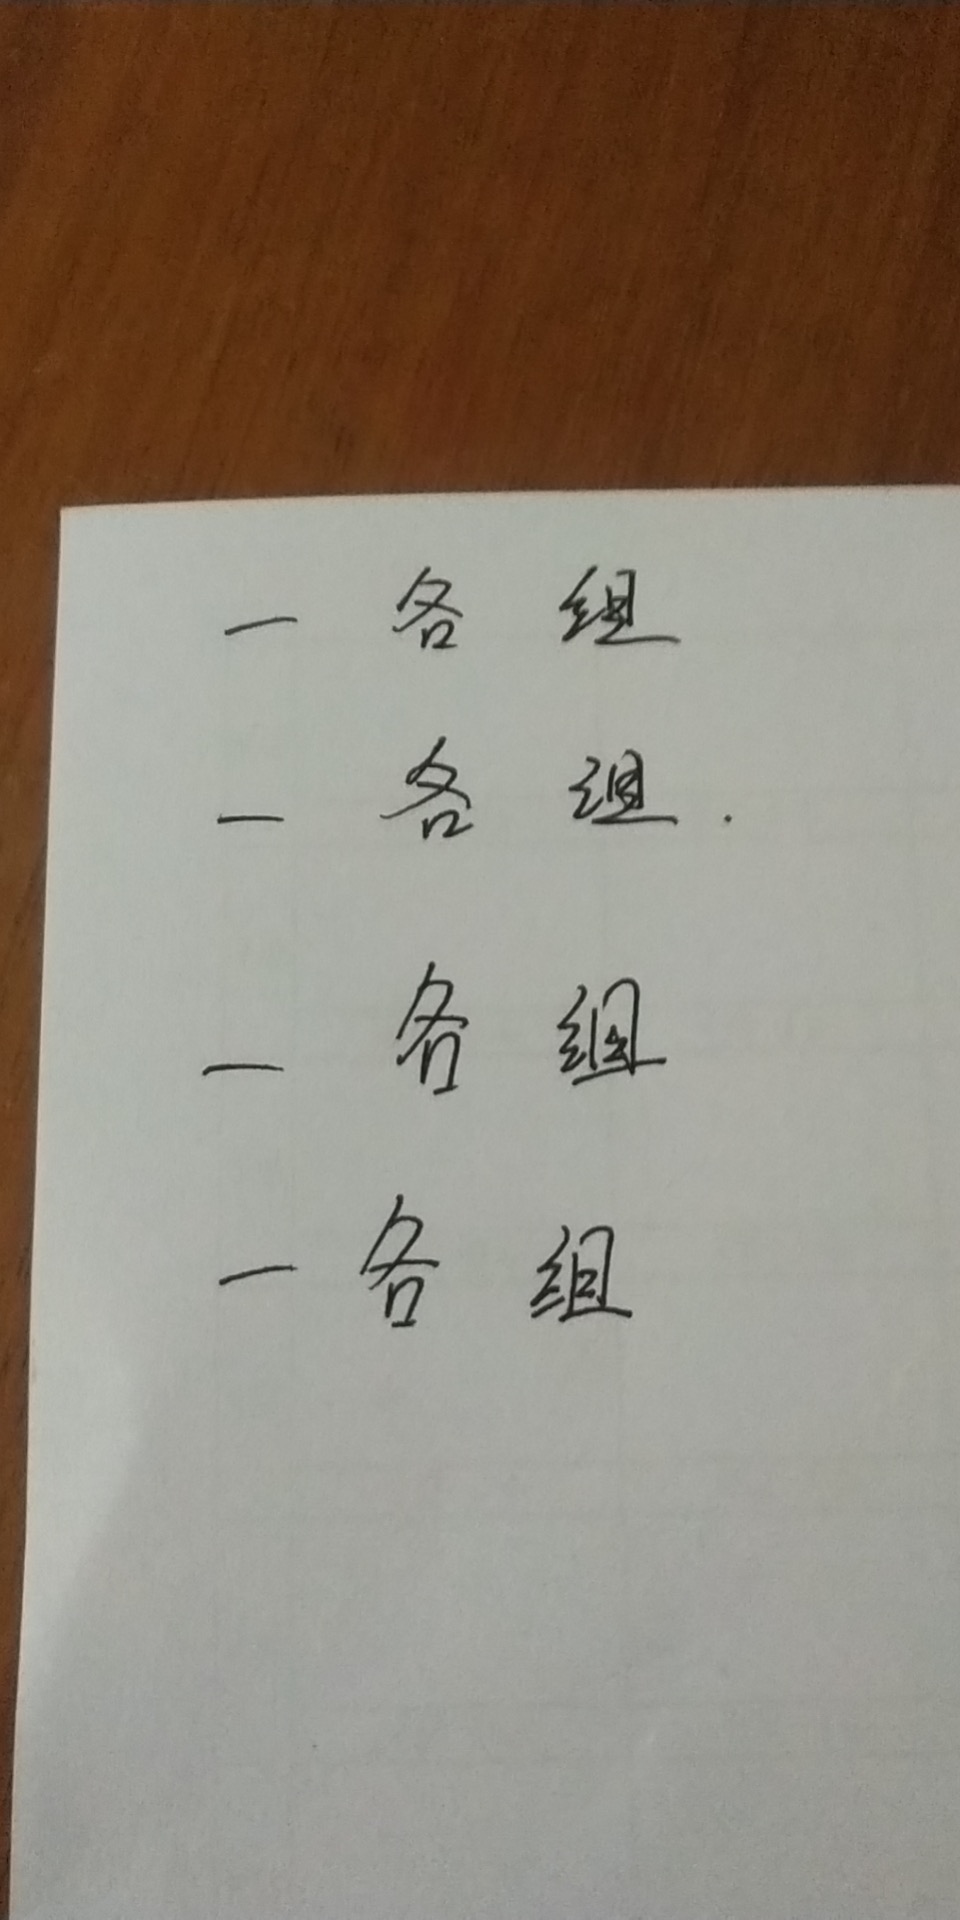 一 各 组
一 各 组.
一 各 组
一 各 组